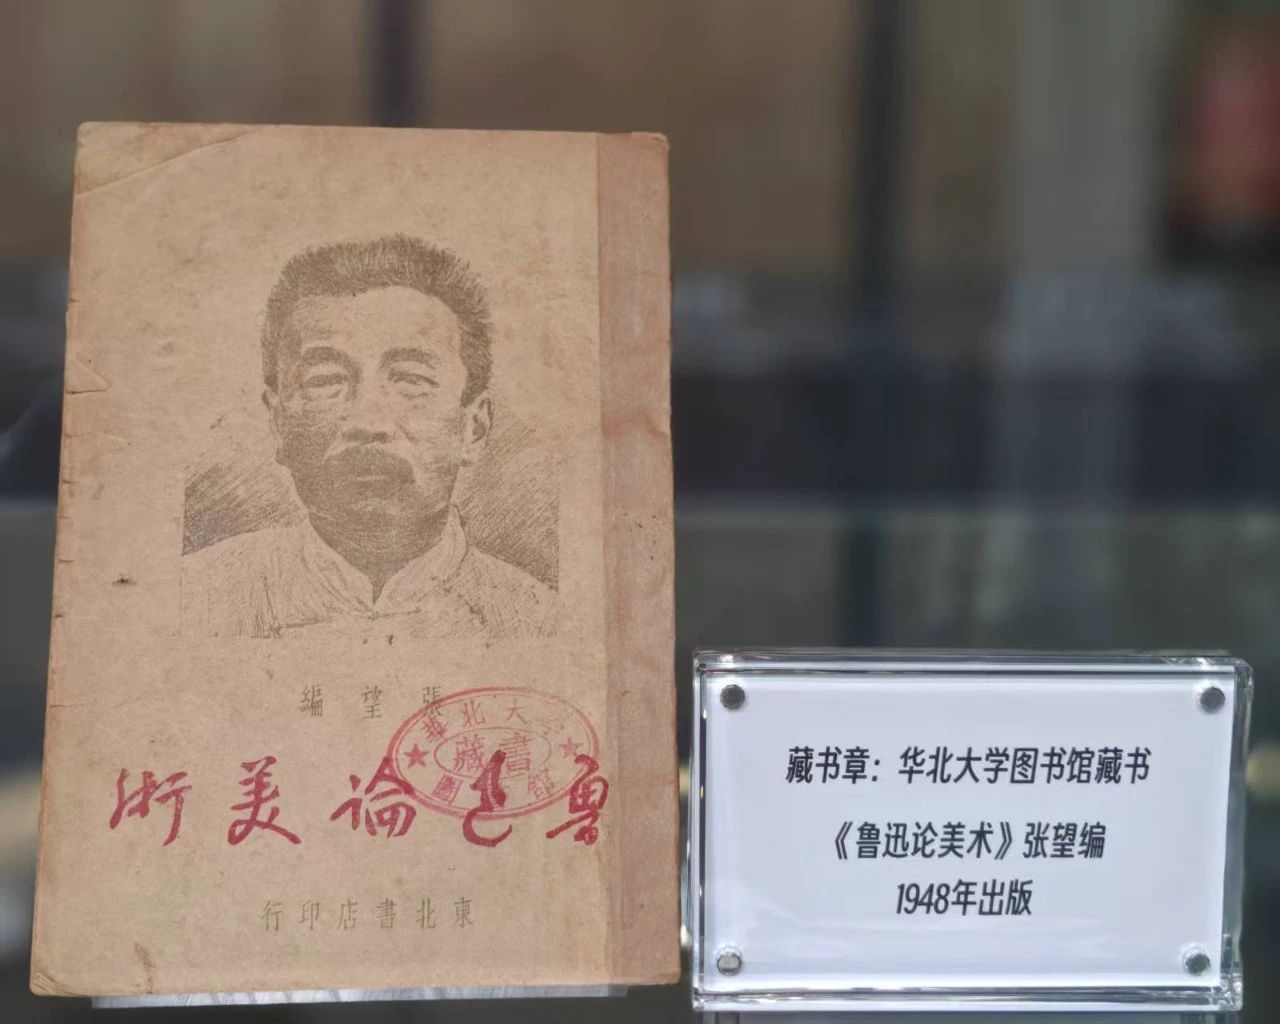 張望編
華北大學
藏書
圖館
魯迅論美術
東北書店印行
藏书章：华北大学图书馆藏书
《鲁迅论美术》张望编
1948年出版